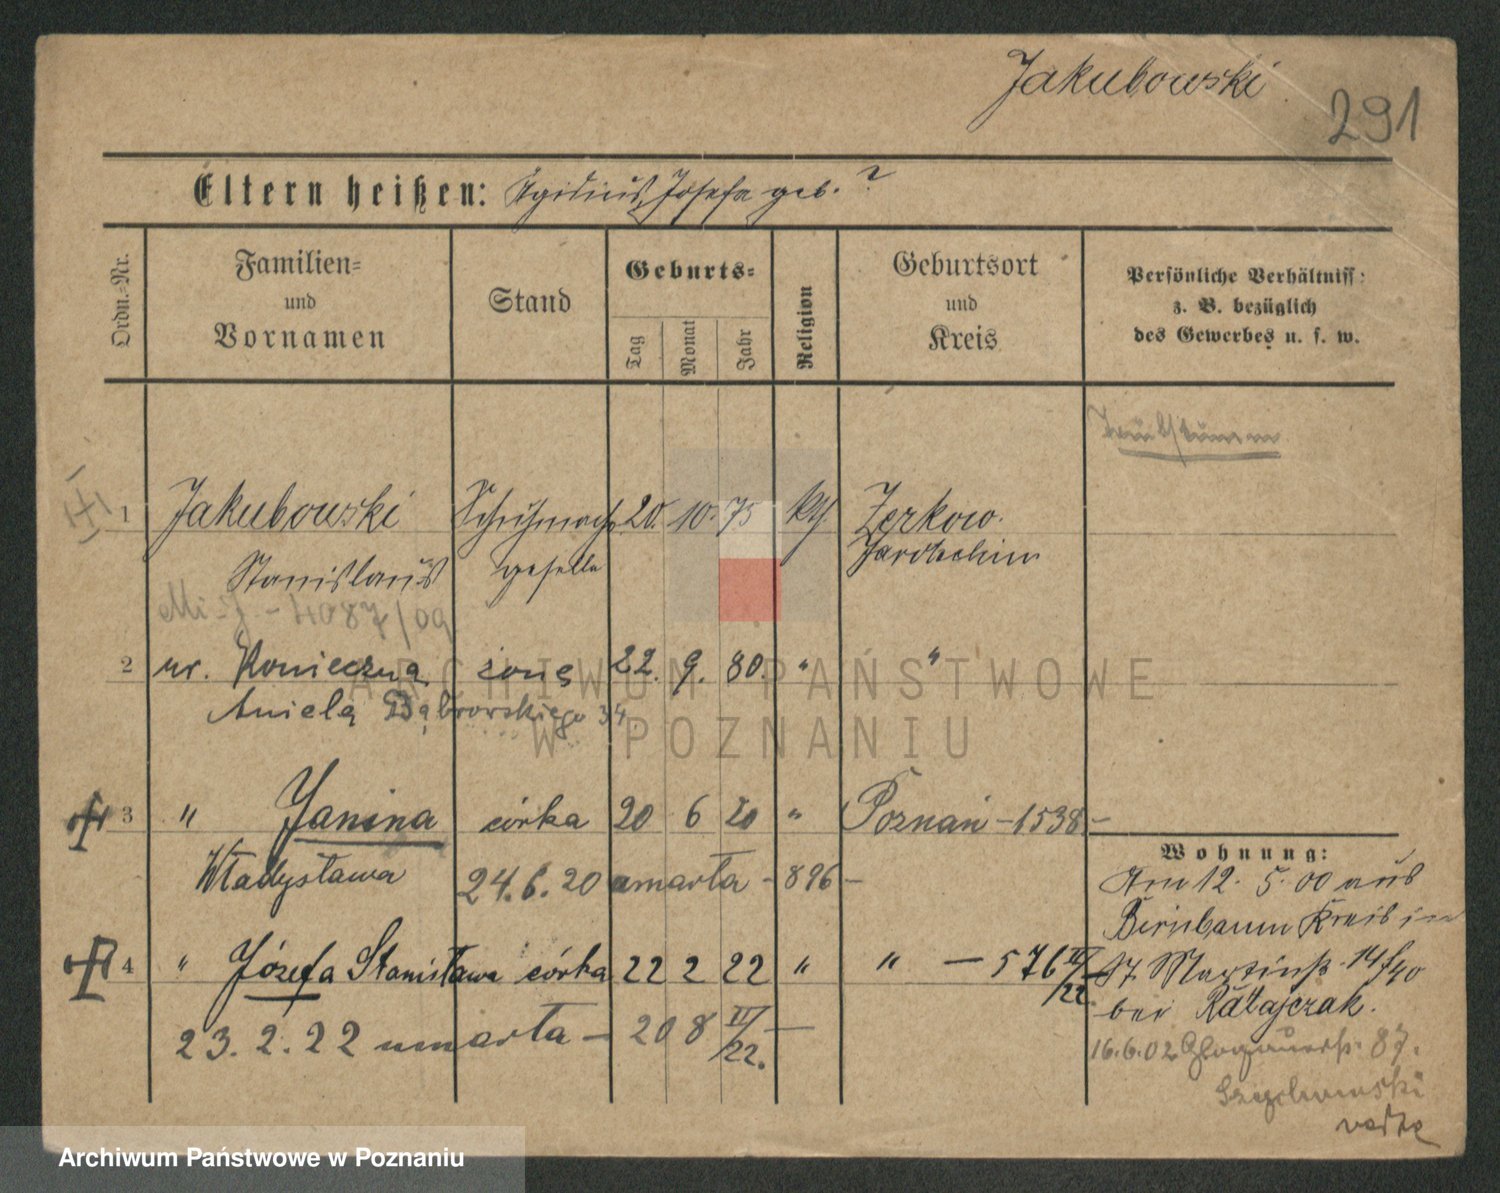 Jakubowski
291
Eltern heißen: Ägidius, Josefa geb. ?
Ordn.-Nr.
Familien-
und
Vornamen
Stand
Geburts-
Tag
Monat
Jahr
Religion
Geburtsort
und
Kreis
Persönliche Verhältniss:
z. B. bezüglich
des Gewerbes u. s. w.
Taubstumm
1 Jakubowski Schuhmach 20. 10. 75 kth Zerkow.
Stanislaus geselle Jarotschin
4087/09
2 ur. Konieczna żona 22. 9. 80. " "
Aniela Dąbrowskiego 34
3 " Janina córka 20 6 20 " Poznań - 1538 -
Władysława 24.6.20 umarła - 896 -
4 " Józefa Stanisława córka 22 2 22 " " - 576 II/22.
23.2.22 umarła - 208 II/22. -
Wohnung:
Am 12. 5. 00 aus
Birnbaum Kreis in
St. Martinstr. 14/40
bei Ratajczak.
16.6.02 Glogauerstr. 87.
ARCHIWUM PAŃSTWOWE
W POZNANIU
Archiwum Państwowe w Poznaniu